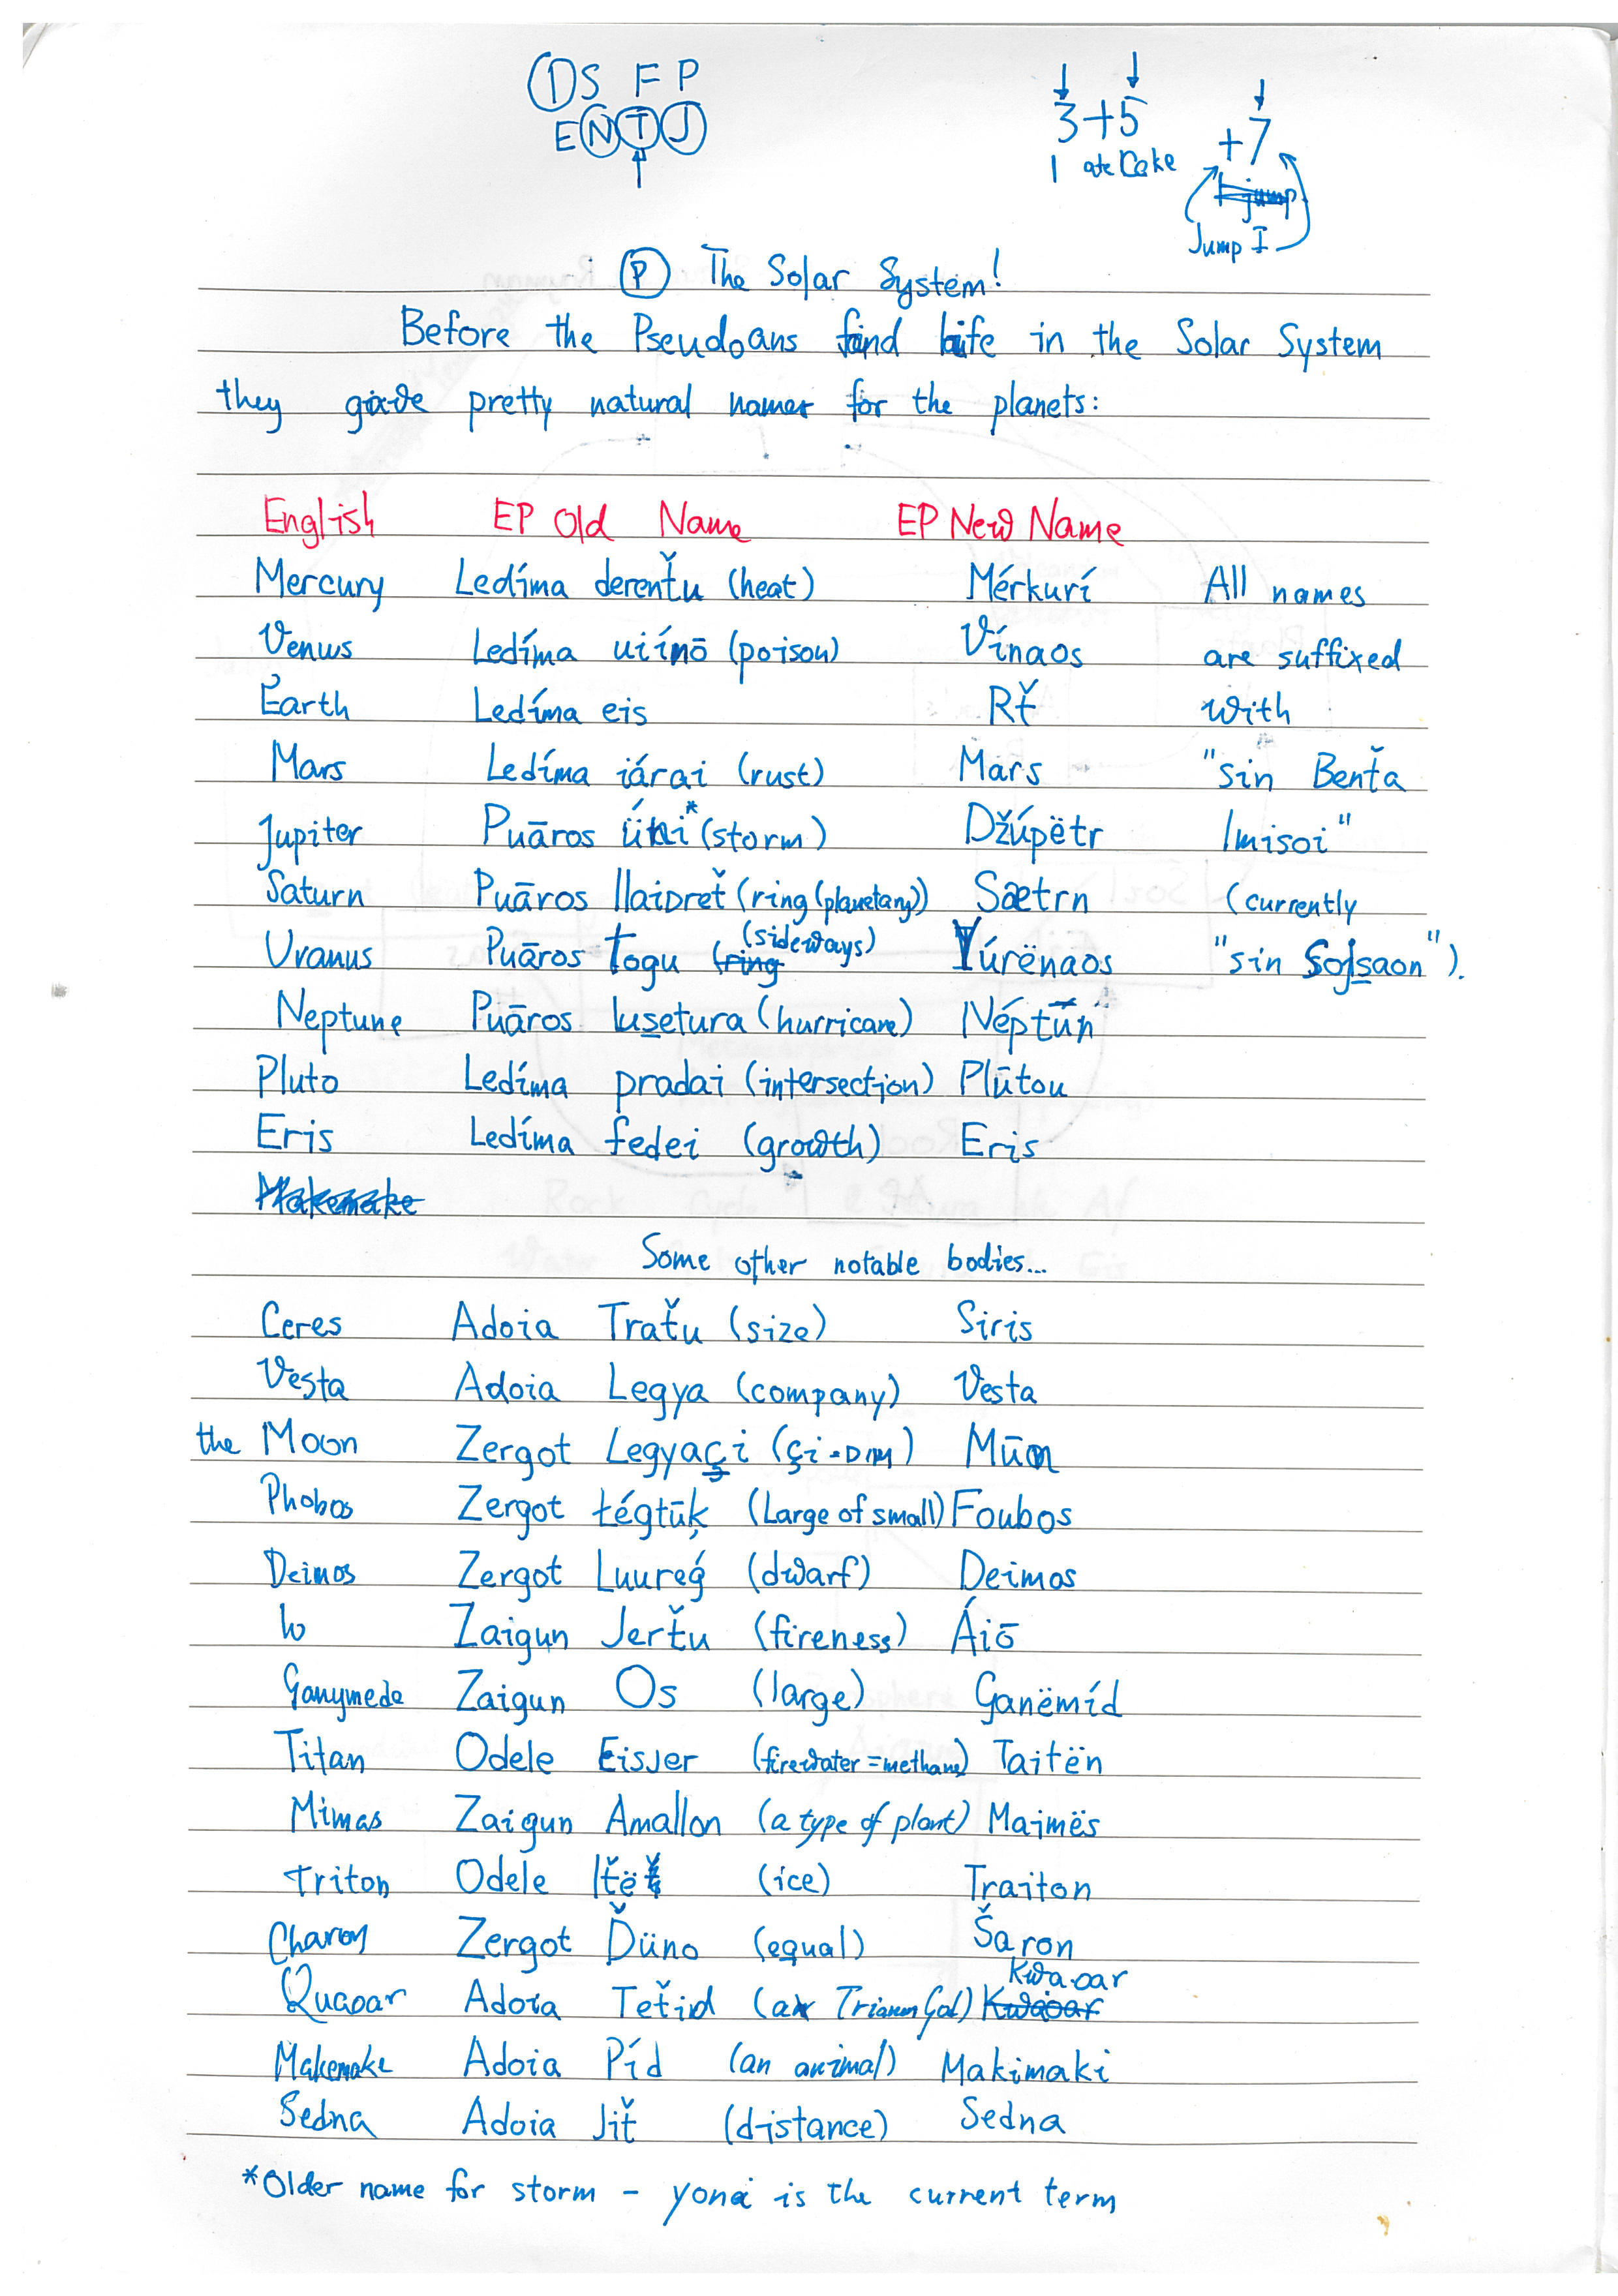 ⒾS F P
EⓃⓉⒿ
3+5
I ate Cake
+7
Jump I
Ⓟ The Solar System!
Before the Pseudoans find life in the Solar System
they gave pretty natural names for the planets:
English EP Old Name EP New Name
Mercury Ledíma derenťu (heat) Mérkurí All names
Venus Ledíma uiínō (poison) Vínaos are suffixed
Earth Ledíma eis Rť with
Mars Ledíma iárai (rust) Márs "sin Benťa
Jupiter Puāros (storm) Džúpëtr Imisoi"
Saturn Puāros llaidreť (ring (planetary)) Sætrn (currently
Uranus Puāros togu (sideways) Yúrënaos "sin Sojsaon").
Neptune Puāros lusetura (hurricane) Néptūn
Pluto Ledíma pradai (intersection) Plūtou
Eris Ledíma fedei (growth) Eris
Some other notable bodies...
Ceres Adoia Traťu (size) Siris
Vesta Adoia Legya (company) Vesta
the Moon Zergot Legyaçi (çi = DIM) Mūn
Phobos Zergot tégtūķ (Large of small) Foubos
Deimos Zergot Luureǵ (dwarf) Deimos
Io Zaigun Jerťu (fireness) Áiō
Ganymede Zaigun Os (large) Ganëmíd
Titan Odele Eisjer (firewater = methane) Taitën
Mimas Zaigun Amallon (a type of plant) Maimës
Triton Odele (ice) Traiton
Charon Zergot Ďüno (equal) Šaron
Quaoar Adoia Teťid Kwaoar
Makemake Adoia Píd (an animal) Makimaki
Sedna Adoia Jiť (distance) Sedna
*Older name for storm – yona is the current term